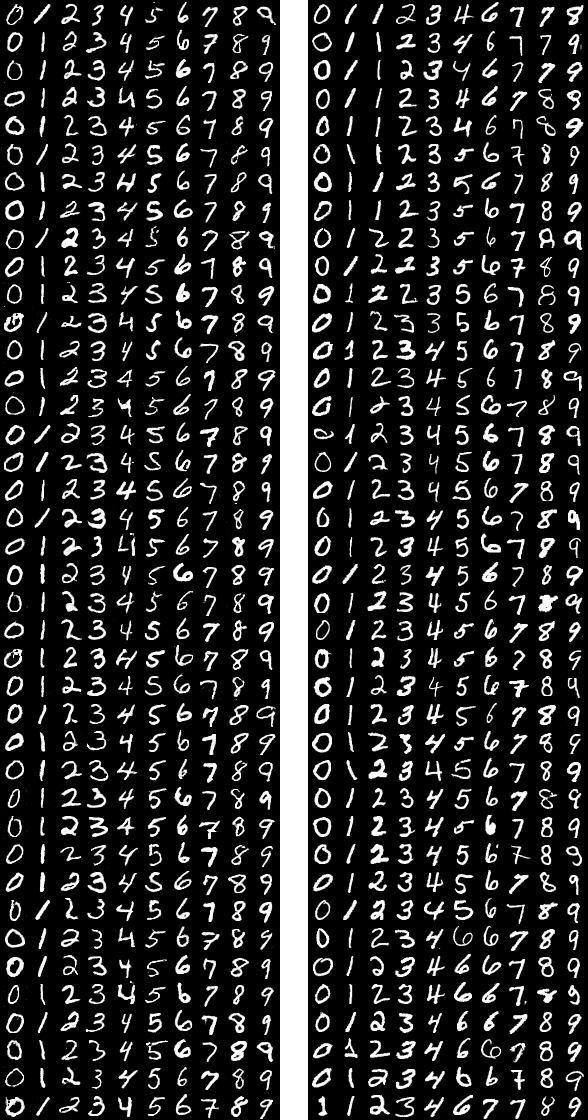 0 1 2 3 4 5 6 7 8 9
0 1 2 3 4 5 6 7 8 9
0 1 2 3 4 5 6 7 8 9
0 1 2 3 4 5 6 7 8 9
0 1 2 3 4 5 6 7 8 9
0 1 2 3 4 5 6 7 8 9
0 1 2 3 4 5 6 7 8 9
0 1 2 3 4 5 6 7 8 9
0 1 2 3 4 5 6 7 8 9
0 1 2 3 4 5 6 7 8 9
0 1 2 3 4 5 6 7 8 9
0 1 2 3 4 5 6 7 8 9
0 1 2 3 4 5 6 7 8 9
0 1 2 3 4 5 6 7 8 9
0 1 2 3 4 5 6 7 8 9
0 1 2 3 4 5 6 7 8 9
0 1 2 3 4 5 6 7 8 9
0 1 2 3 4 5 6 7 8 9
0 1 2 3 4 5 6 7 8 9
0 1 2 3 4 5 6 7 8 9
0 1 2 3 4 5 6 7 8 9
0 1 2 3 4 5 6 7 8 9
0 1 2 3 4 5 6 7 8 9
0 1 2 3 4 5 6 7 8 9
0 1 2 3 4 5 6 7 8 9
0 1 2 3 4 5 6 7 8 9
0 1 2 3 4 5 6 7 8 9
0 1 2 3 4 5 6 7 8 9
0 1 2 3 4 5 6 7 8 9
0 1 2 3 4 5 6 7 8 9
0 1 2 3 4 5 6 7 8 9
0 1 2 3 4 5 6 7 8 9
0 1 2 3 4 5 6 7 8 9
0 1 2 3 4 5 6 7 8 9
0 1 2 3 4 5 6 7 8 9
0 1 2 3 4 5 6 7 8 9
0 1 2 3 4 5 6 7 8 9
0 1 2 3 4 5 6 7 8 9
0 1 2 3 4 5 6 7 8 9
0 1 2 3 4 5 6 7 8 9
0 1 1 2 3 4 6 7 7 8
0 1 1 2 3 4 6 7 7 9
0 1 1 2 3 4 6 7 7 9
0 1 1 2 3 4 6 7 8 8
0 1 1 2 3 4 6 7 8 9
0 1 1 2 3 5 6 7 8 9
0 1 1 2 3 5 6 7 8 9
0 1 1 2 3 5 6 7 8 9
0 1 2 2 3 5 6 7 8 9
0 1 2 2 3 5 6 7 8 9
0 1 2 2 3 5 6 7 8 9
0 1 2 3 3 5 6 7 8 9
0 1 2 3 4 5 6 7 8 9
0 1 2 3 4 5 6 7 8 9
0 1 2 3 4 5 6 7 8 9
0 1 2 3 4 5 6 7 8 9
0 1 2 3 4 5 6 7 8 9
0 1 2 3 4 5 6 7 8 9
0 1 2 3 4 5 6 7 8 9
0 1 2 3 4 5 6 7 8 9
0 1 2 3 4 5 6 7 8 9
0 1 2 3 4 5 6 7 8 9
0 1 2 3 4 5 6 7 8 9
0 1 2 3 4 5 6 7 8 9
0 1 2 3 4 5 6 7 8 9
0 1 2 3 4 5 6 7 8 9
0 1 2 3 4 5 6 7 8 9
0 1 2 3 4 5 6 7 8 9
0 1 2 3 4 5 6 7 8 9
0 1 2 3 4 5 6 7 8 9
0 1 2 3 4 5 6 7 8 9
0 1 2 3 4 5 6 7 8 9
0 1 2 3 4 5 6 7 8 9
0 1 2 3 4 6 6 7 8 9
0 1 2 3 4 6 6 7 8 9
0 1 2 3 4 6 6 7 8 9
0 1 2 3 4 6 6 7 8 9
0 1 2 3 4 6 6 7 8 9
0 1 2 3 4 6 6 7 8 9
1 1 2 3 4 6 7 7 8 9